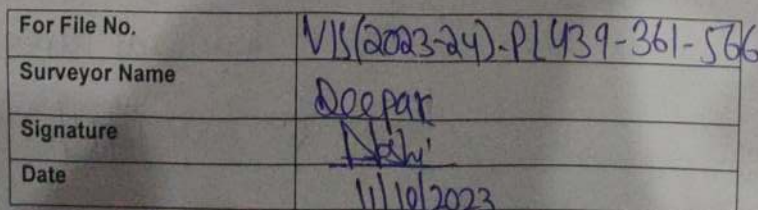 For File No. VIS(2023-24)-PL439-361-566
Surveyor Name Deepak
Signature Joshi
Date 11/10/2023